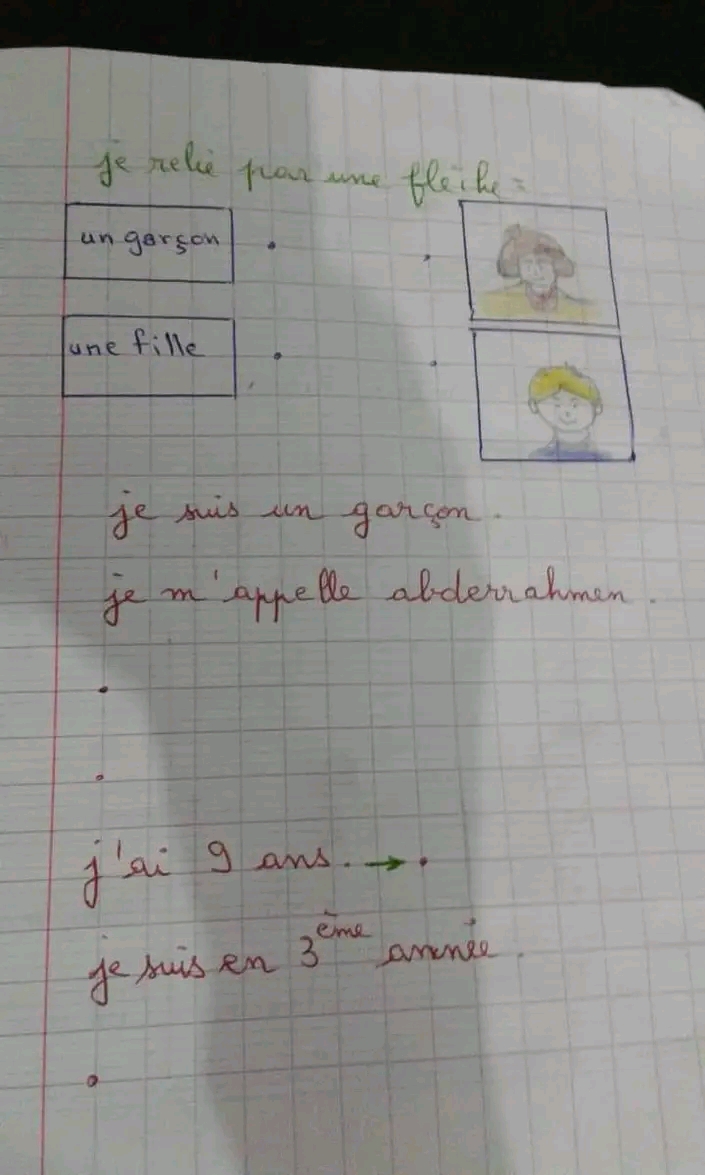 je relie par une flèche :
un garçon
une fille
je suis un garçon.
je m'appelle abderrahmen.
j'ai 9 ans. →
je suis en 3ème année.